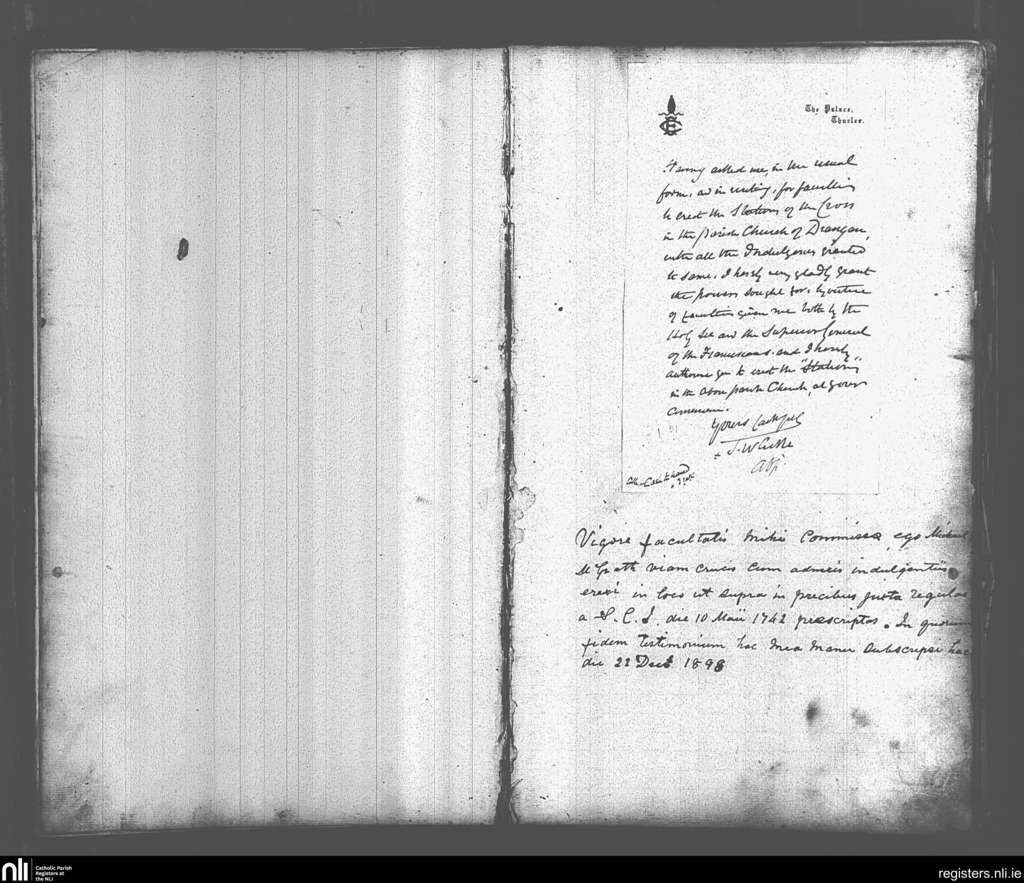 The Palace,
Thurles.
Having asked me, in the usual
form, and in writing, for faculties
to erect the Stations of the Cross
in the Parish Church of Drangan,
with all the Indulgences granted
to same, I hereby very gladly grant
the powers sought for, by virtue
of faculties given me both by the
Holy See and the Superior General
of the Franciscans. and I hereby
authorise you to erect the "Stations"
in the above parish Church, at your
convenience.
Yours faithfully
+ T. W. Croke
Vigore facultatis mihi Commissa, ego Michael
McGrath viam crucis cum adnexis indulgentiis
erexi in loco ut supra in precibus juxta regulas
a S. C. I. die 10 Maii 1742 prescriptas. In quorum
fidem testimonium hac mea manu subscripsi hac
die 22 Dect 1898
nli
Catholic Parish
Registers at
the NLI
registers.nli.ie